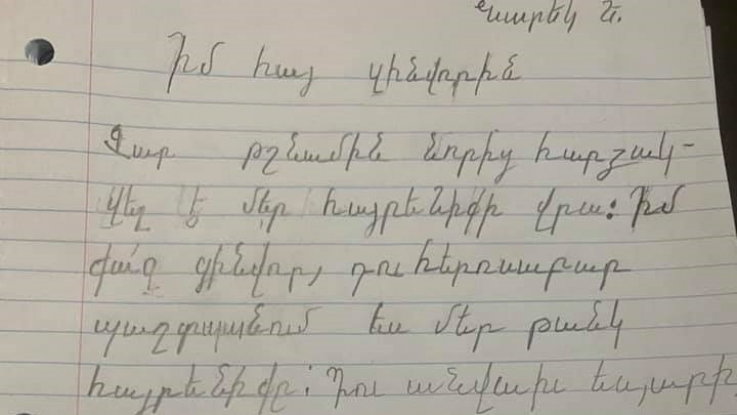 Նարեկ Ե.
Իմ հայ զինվորին
Չար թշնամին նորից հարձակ-
վել է մեր հայրենիքի վրա: Իմ
քաջ զինվոր, դու հերոսաբար
պաշտպանում ես մեր թանկ
հայրենիքը: Դու անվախ եղարի